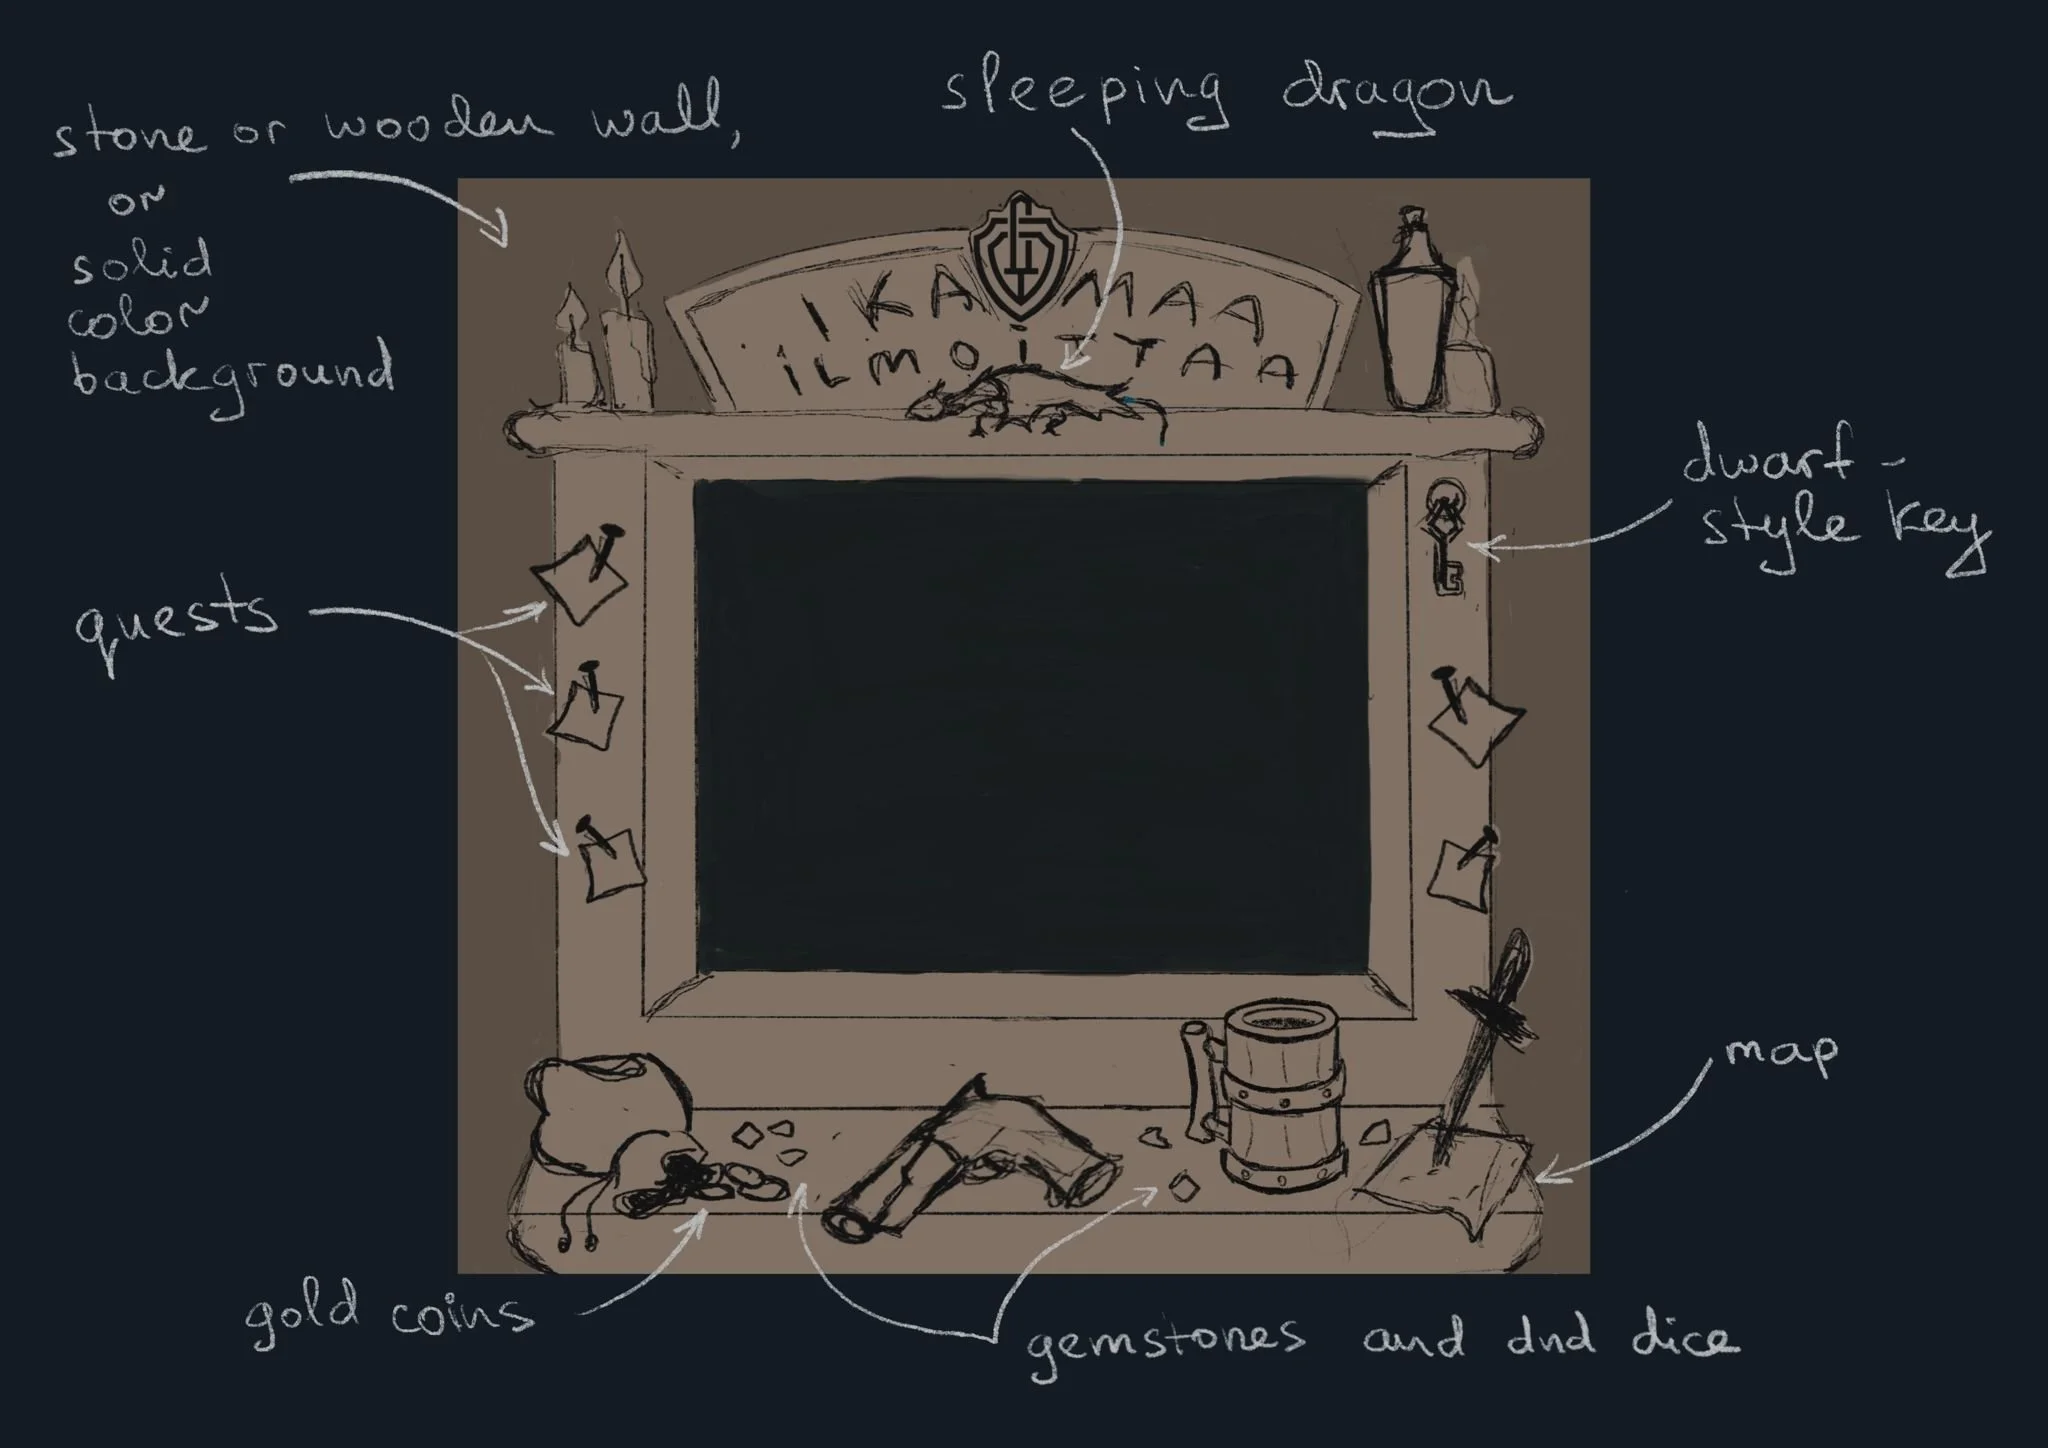 sleeping dragon
stone or wooden wall,
or
solid
color
background
IKAMAA
iLMOiTTAA
dwarf-
style key
quests
map
gold coins
gemstones and dnd dice